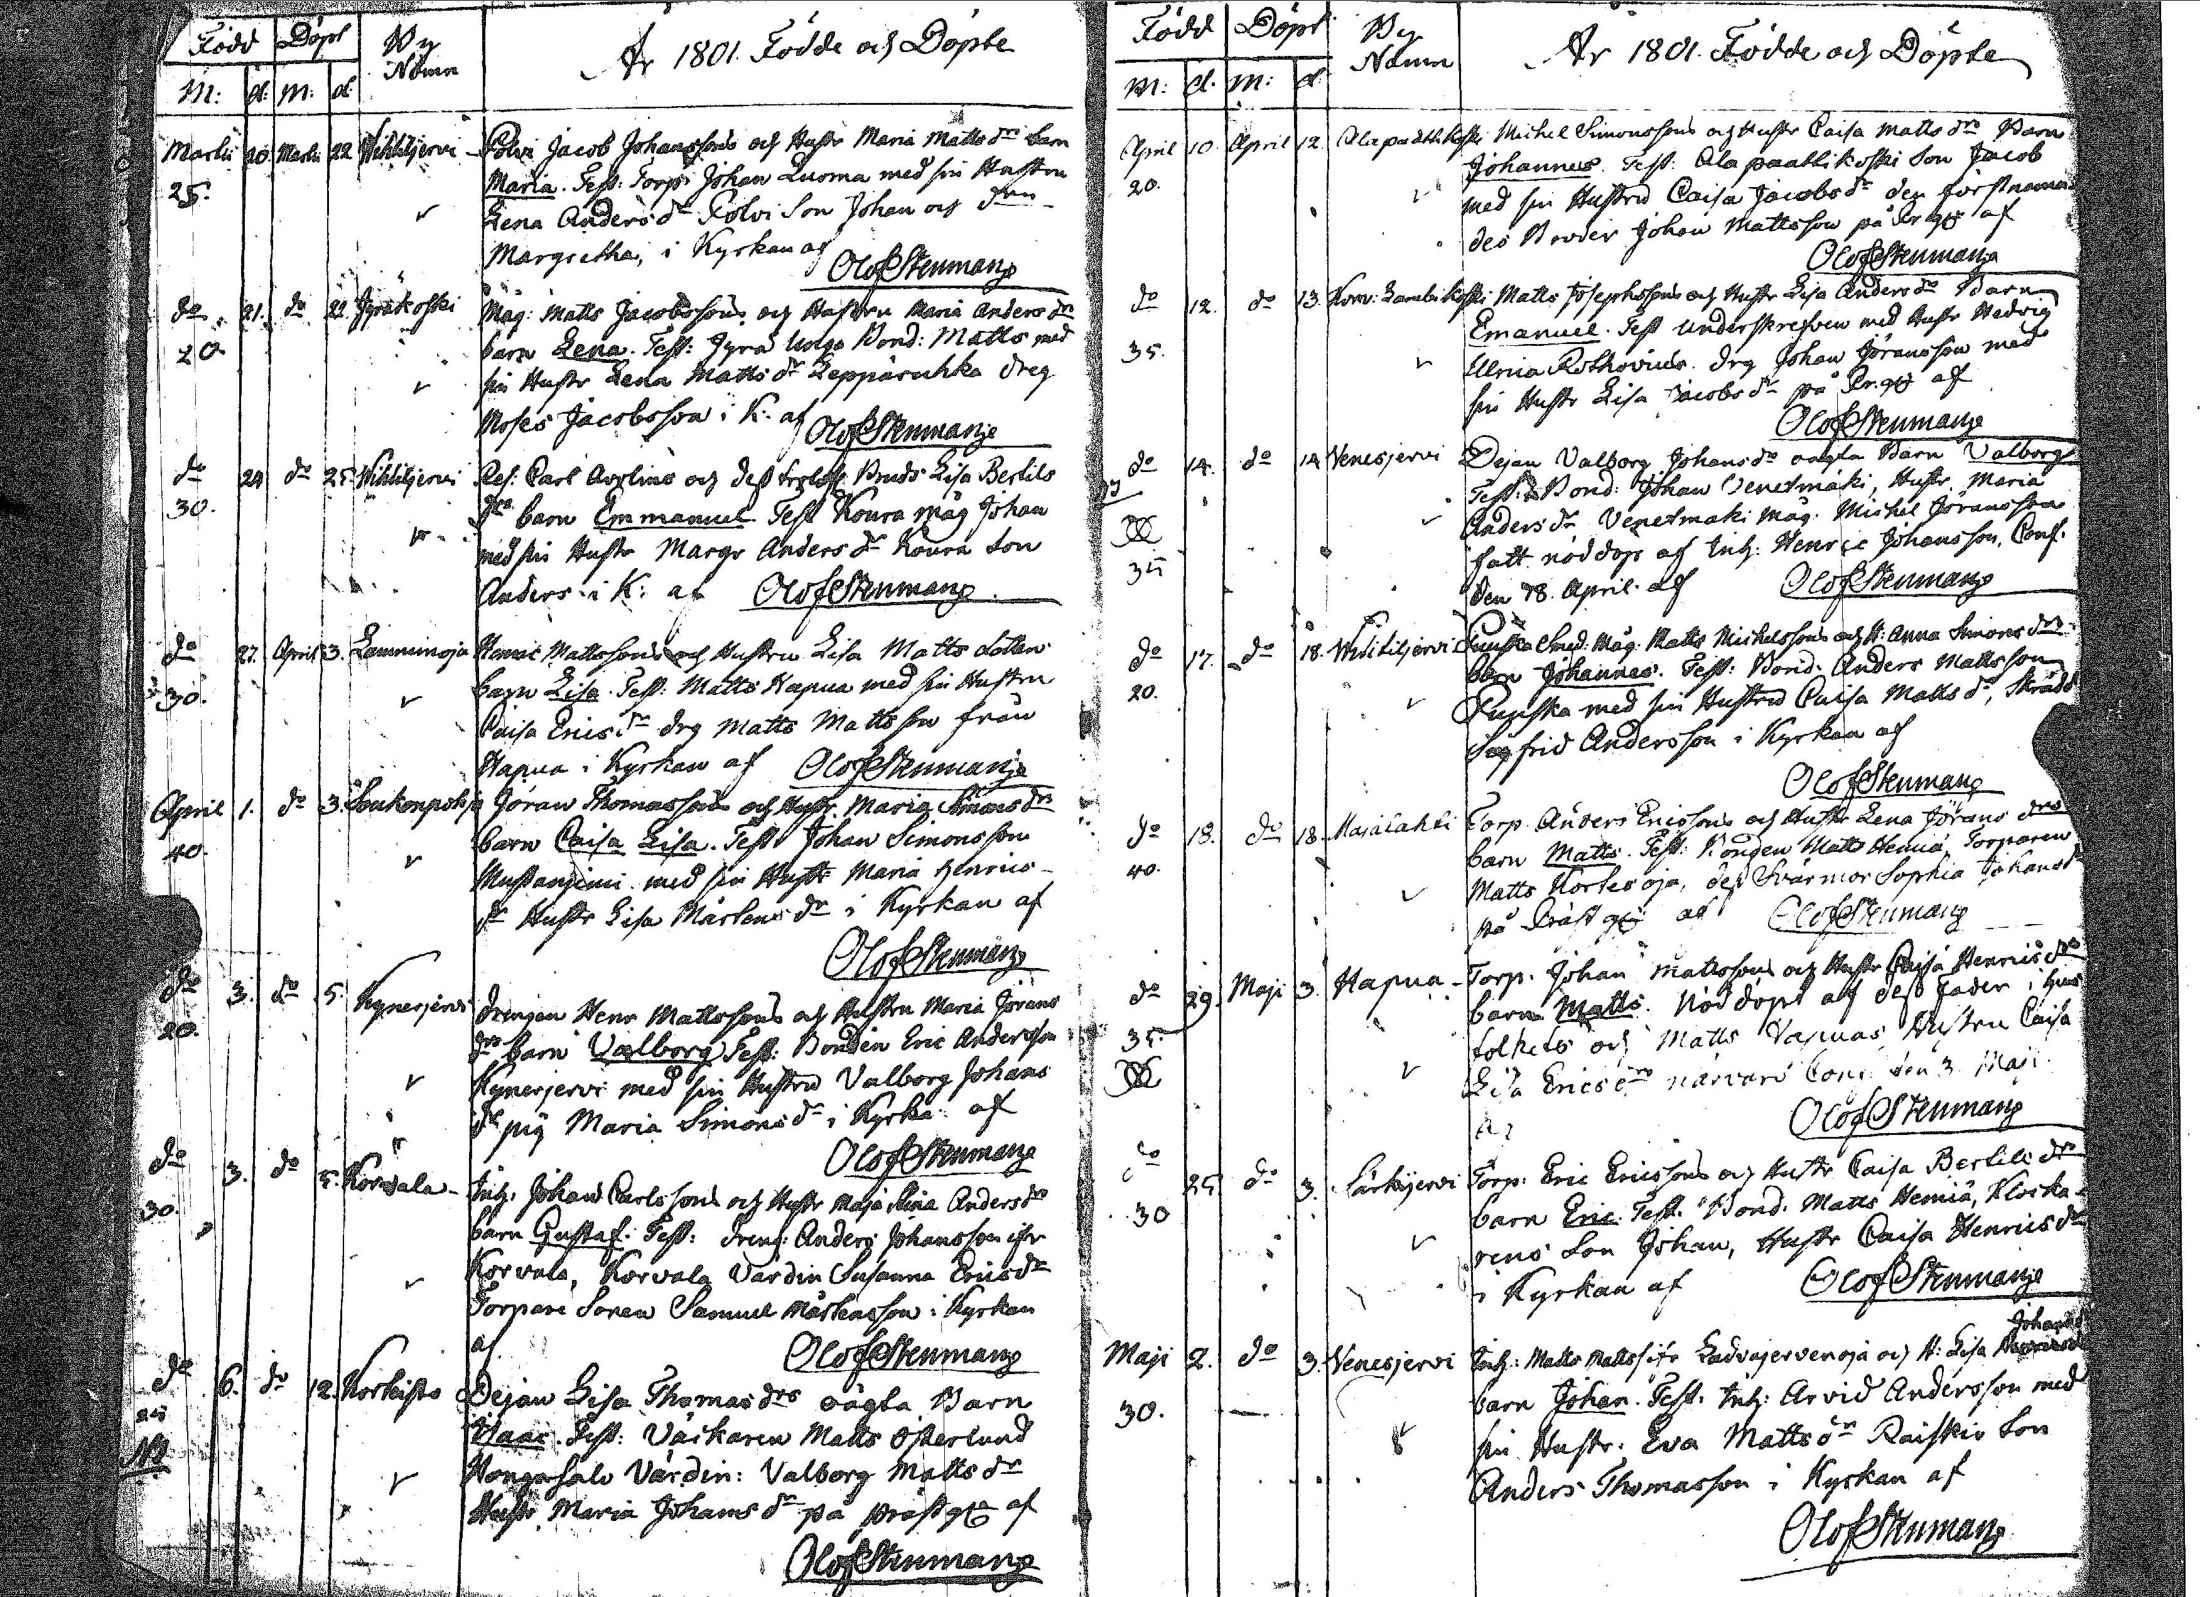 Född Döpt By Namn År 1801. Födde och Döpte
M: d: M: d:
Martii 20. Martii 22 Polvi Jacob Johanssons och Hustr Maria Matts dr barn
25. Maria. Test: Torp: Johan Luoma med sin Hustru
Lena Anders dr Polvi Son Johan och
Margretha, i Kyrkan af
Olof Stenmang
do 21. do 22 Jyräkoski Måg: Matts Jacobssons och Hustru Maria Anders dr
20. barn Lena. Test: Jyrä unga Bond: Matts med
sin Hustr Lena Matts dr Leppäruhka dreg
Moses Jacobsson i K. af Olof Stenmang
do 24 do 25 Carl och dess Lisa Bertils
30. drs barn Emmanuel Test Koura måg Johan
med sin Hustr Margr Anders dr Koura Son
Anders i K: af Olof Stenmang
do 27. April 3. Lamminoja Henric Mattssons och Hustru Lisa Matts dotters
30. barn Lisa. Test: Matts Hapua med sin Hustru
Caisa Erics dr drg Matts Mattsson från
Hapua i Kyrkan af Olof Stenmang
April 1. do 3. Jöran Thomassons och Hustr. Maria Simons drs
40. barn Caisa Lisa. Test Johan Simonsson
med sin Hustr Maria Henrics
dr Hustr Lisa Mårtens dr i Kyrkan af
Olof Stenmang
do 3. do 5. Kynerjervi drengen Henr Mattssons och Hustru Maria Jörans
20. drs barn Valborg Test: Bonden Eric Andersson
Kynerjervi med sin Hustru Valborg Johans
dr pig Maria Simons dr i Kyrka: af
Olof Stenmang
do 3. do 5. Korvala Inh: Johan Carlssons och Hustr Maja Stina Anders drs
30. barn Gustaf. Test: dreng: Anders Johansson
Korvala, Korvala Värdin Susanna Erics dr
Torpare Sonen Samuel Mårtensson i Kyrkan
af Olof Stenmang
do 6. do 12. Korkisto Dejan Lisa Thomas drs oägta Barn
Isaac. Test: Väckaren Matts Österlund
Hongasalo Värdin: Valborg Matts dr
Hustr Maria Johans dr på Prästg af
Olof Stenmang
Född Döpt By Namn År 1801. Födde och Döpte
M: d. M: d.
April 10. April 12. Michel Simonssons och Hustr Caisa Matts drs Barn
20. Johannes. Test: Ala paattikoski Son Jacob
med sin Hustru Caisa Jacobs dr den förstnämn
des Broder Johan Mattsson på af
Olof Stenmang
do 12. do 13. Matts Josephssons och Hustr Lisa Anders drs Barn
35. Emanuel. Test underskrefven med Hustr Hedvig
Ulrica Rothovius. drg Johan Jöransson med
sin Hustr Lisa Jacobs dr på af
Olof Stenmang
do 14. do 14 Venesjervi Dejan Valborg Johans drs oägta Barn Valborg
Test: Bond: Johan Venetmäki, Hustr. Maria
Anders dr Venetmäki Måg. Michel Jöransson
35 fatt nöddop af Inh: Henric Johansson, Conf.
den 18. April. af Olof Stenmang
do 17. do 18. Måg: Matts Michelssons och H: Anna Simons drs
20. barn Johannes. Test: Bond: Anders Mattsson
med sin Hustru Caisa Matts dr, Skrädd
Sigfrid Andersson i Kyrkan af
Olof Stenmang
do 18. do 18. Torp. Anders Ericssons och Hustr Lena Jörans drs
40. barn Matts. Test: Bonden Matts Hemiä, Torparen
Matts Kortesoja, dess Svärmor Sophia Johans dr
på Präst af Olof Stenmang
do 29. Maji 3. Hapua Torp. Johan Mattssons och Hustr Caisa Henrics drs
35. barn Matts. Nöddöpt af dess Fader i hus
folkets och Matts Hapuas Hustru Caisa
Lisa Erics drs närvaro Conf. den 3 Maji.
af Olof Stenmang
do 25 do 3. Särkijervi Torp: Eric Ericssons och Hustr Caisa Bertils drs
30 barn Eric Test. Bond. Matts Hemiä, Klocka
rens Son Johan, Hustr Caisa Henrics dr
i Kyrkan af Olof Stenmang
Maji 2. do 3. Venesjervi Inh: Matts Matts och H: Lisa Johans
30. barn Johan. Test. Inh: Arvid Andersson med
sin Hustr. Eva Matts dr Raiskio Son
Anders Thomasson i Kyrkan af
Olof Stenmang